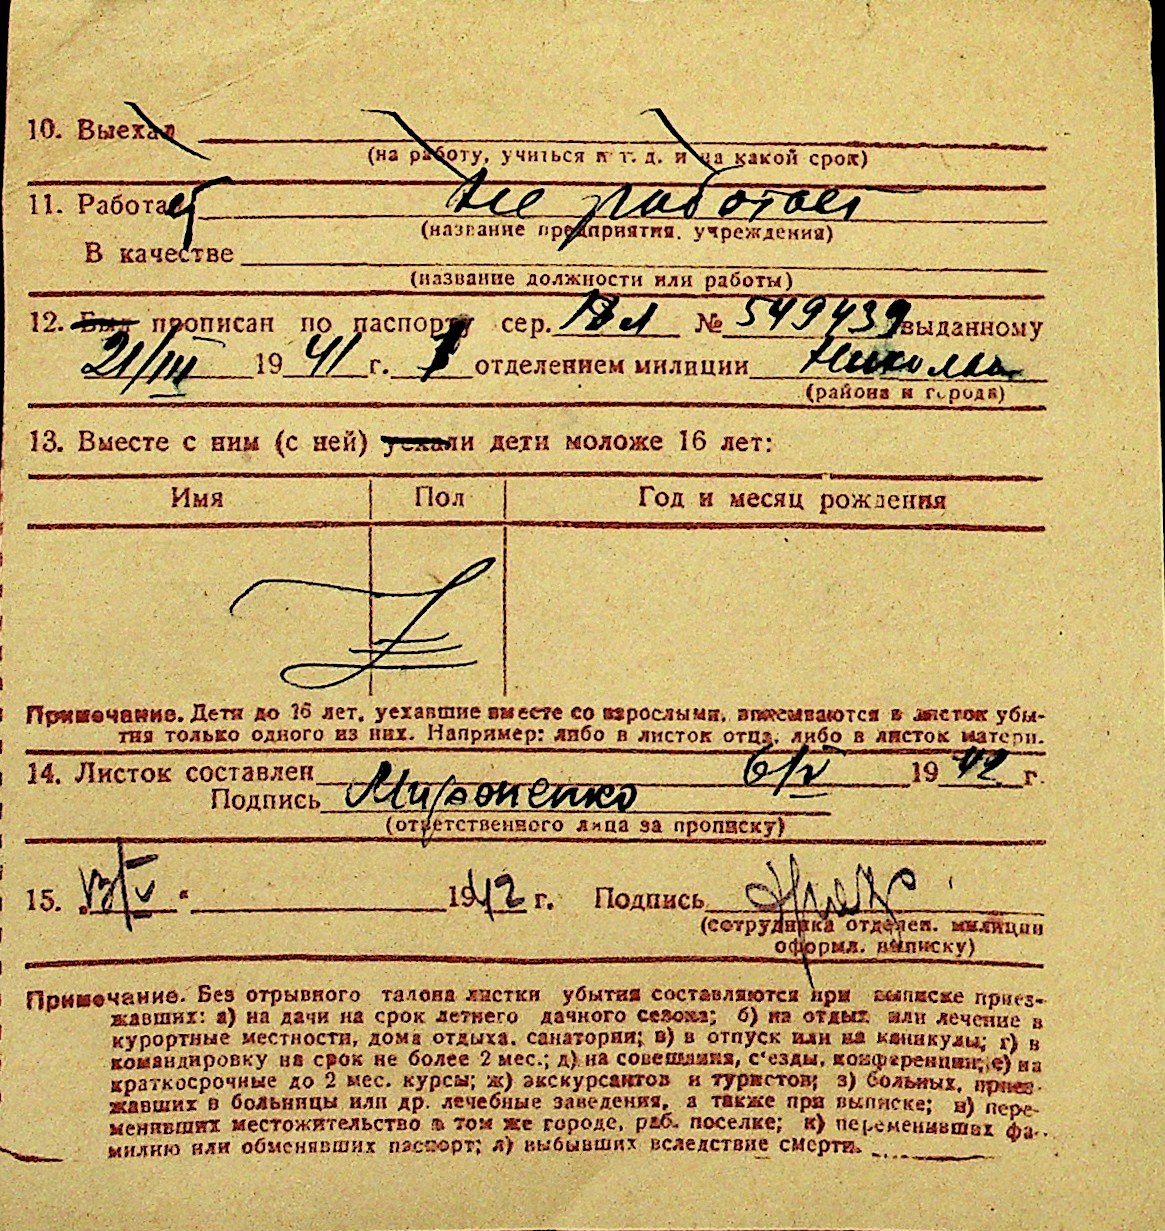 10. Выехал
(на работу, учиться и т. д. и на какой срок)
11. Работает не работает
(название предприятия, учреждения)
В качестве
(название должности или работы)
12. Был прописан по паспорту сер. № 549439 выданному
21/III 1941 г. 1 отделением милиции
(района и города)
13. Вместе с ним (с ней) уехали дети моложе 16 лет:
Имя Пол Год и месяц рождения
Примечание. Дети до 16 лет, уехавшие вместе со взрослыми, вписываются в листок убы-
тия только одного из них. Например: либо в листок отца, либо в листок матери.
14. Листок составлен 6/V 1942 г.
Подпись Мироненко
(ответственного лица за прописку)
15. 13/V 1942 г. Подпись
(сотрудника отделен. милиции
оформл. выписку)
Примечание. Без отрывного талона листки убытия составляются при выписке приез-
жавших: а) на дачи на срок летнего дачного сезона; б) на отдых или лечение в
курортные местности, дома отдыха, санатории; в) в отпуск или на каникулы; г) в
командировку на срок не более 2 мес.; д) на совещания, с'езды, конференции; е) на
краткосрочные до 2 мес. курсы; ж) экскурсантов и туристов; з) больных, приез-
жавших в больницы или др. лечебные заведения, а также при выписке; и) пере-
менивших местожительство в том же городе, раб. поселке; к) переменивших фа-
милию или обменявших паспорт; л) выбывших вследствие смерти.